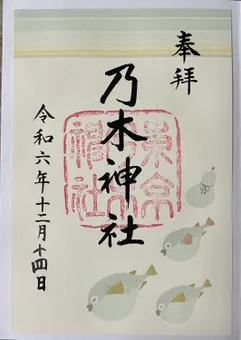 奉拝
乃木神社
令和六年十二月十四日